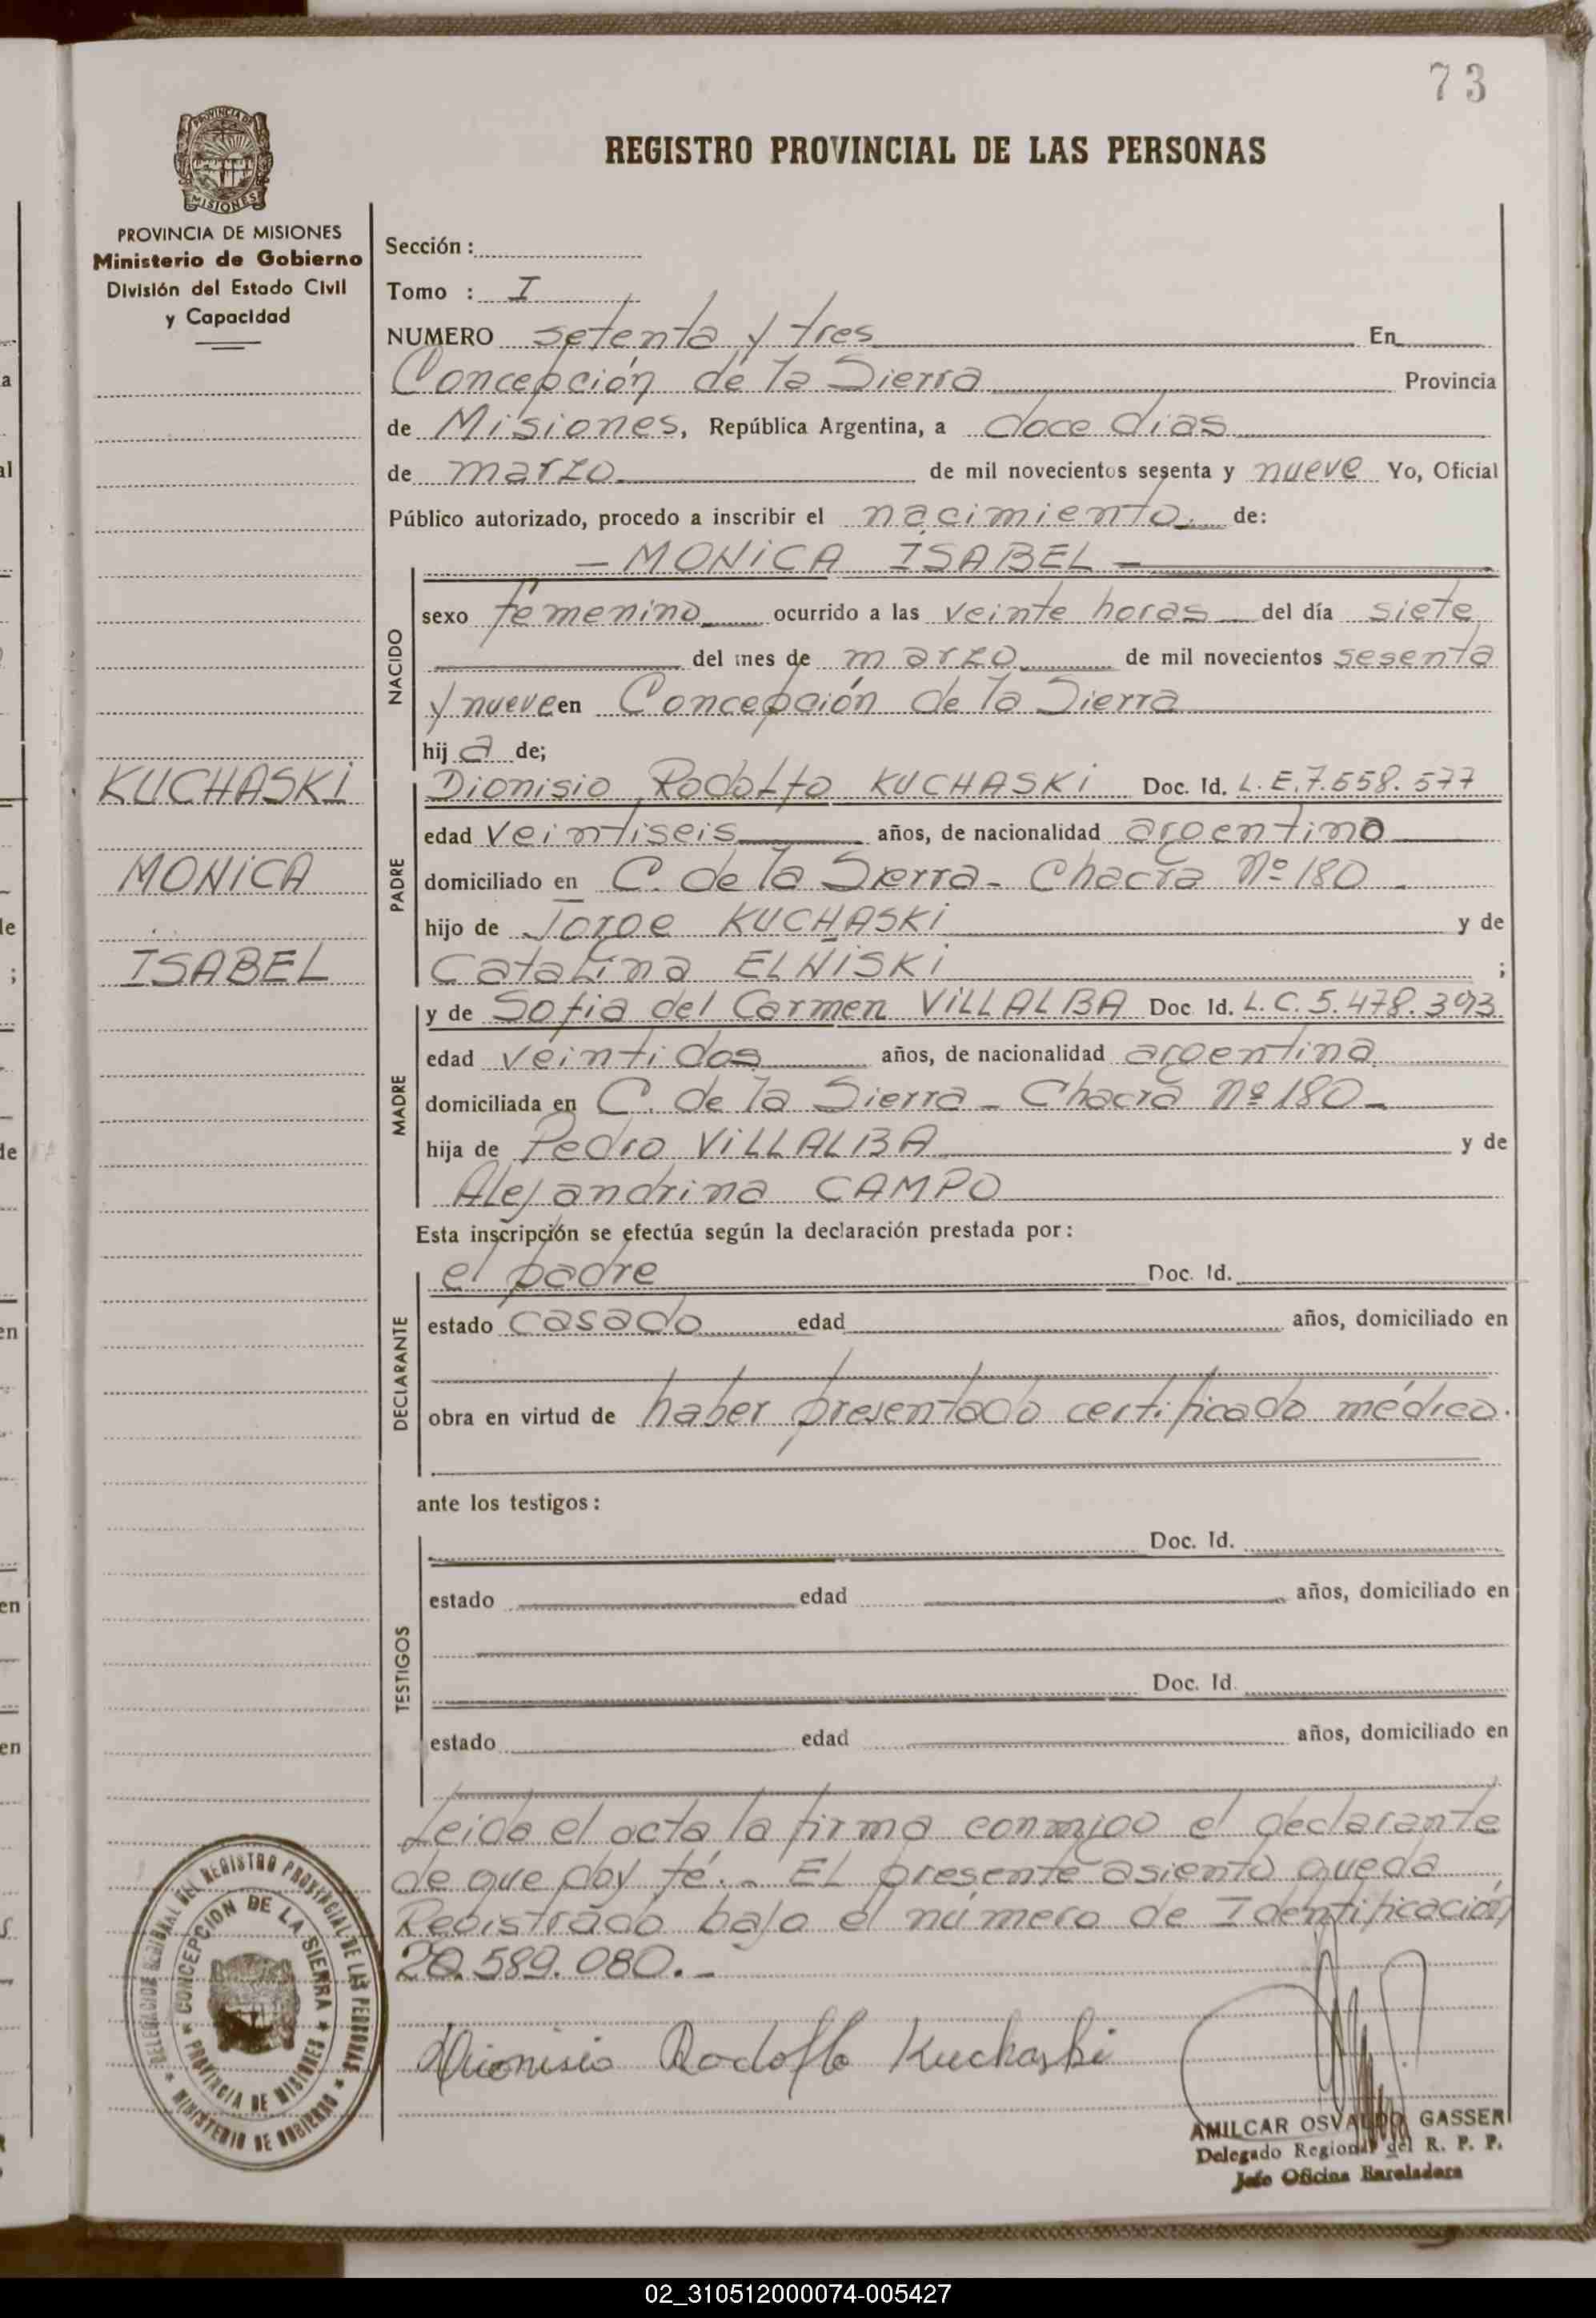 73
REGISTRO PROVINCIAL DE LAS PERSONAS
PROVINCIA DE MISIONES
Ministerio de Gobierno
División del Estado Civil
y Capacidad
Sección :
Tomo : I
NUMERO setenta y tres En
Concepción de la Sierra Provincia
de Misiones, República Argentina, a doce dias
de marzo de mil novecientos sesenta y nueve Yo, Oficial
Público autorizado, procedo a inscribir el nacimiento de:
— MONICA ISABEL —
NACIDO
sexo femenino ocurrido a las veinte horas del día siete
del mes de marzo de mil novecientos sesenta
y nueve en Concepción de la Sierra
hij a de;
KUCHASKI
MONICA
ISABEL
PADRE
Dionisio Rodolfo KUCHASKI Doc. Id. L.E.7.558.577
edad veintiseis años, de nacionalidad argentino
domiciliado en C. de la Sierra - Chacra Nº 180 -
hijo de Jorge KUCHASKI y de
Catalina ELÑISKI ;
MADRE
y de Sofia del Carmen VILLALBA Doc Id. L.C. 5.478.393
edad veintidos años, de nacionalidad argentina
domiciliada en C. de la Sierra - Chacra Nº 180 -
hija de Pedro VILLALBA y de
Alejandrina CAMPO
Esta inscripción se efectúa según la declaración prestada por :
DECLARANTE
el padre Doc. Id.
estado casado edad años, domiciliado en
obra en virtud de haber presentado certificado médico.
ante los testigos :
TESTIGOS
Doc. Id.
estado edad años, domiciliado en
Doc. Id.
estado edad años, domiciliado en
Leida el acta la firma conmigo el declarante
de que doy fé. - EL presente asiento queda
Registrado bajo el número de Identificación
20.589.080. -
Dionisio Rodolfo Kuchaski
DELEGACION REGIONAL DEL REGISTRO PROVINCIAL DE LAS PERSONAS
MINISTERIO DE GOBIERNO
CONCEPCION DE LA SIERRA
PROVINCIA DE MISIONES
AMILCAR OSVALDO GASSER
Delegado Regional del R. P. P.
Jefe Oficina
02_310512000074-005427